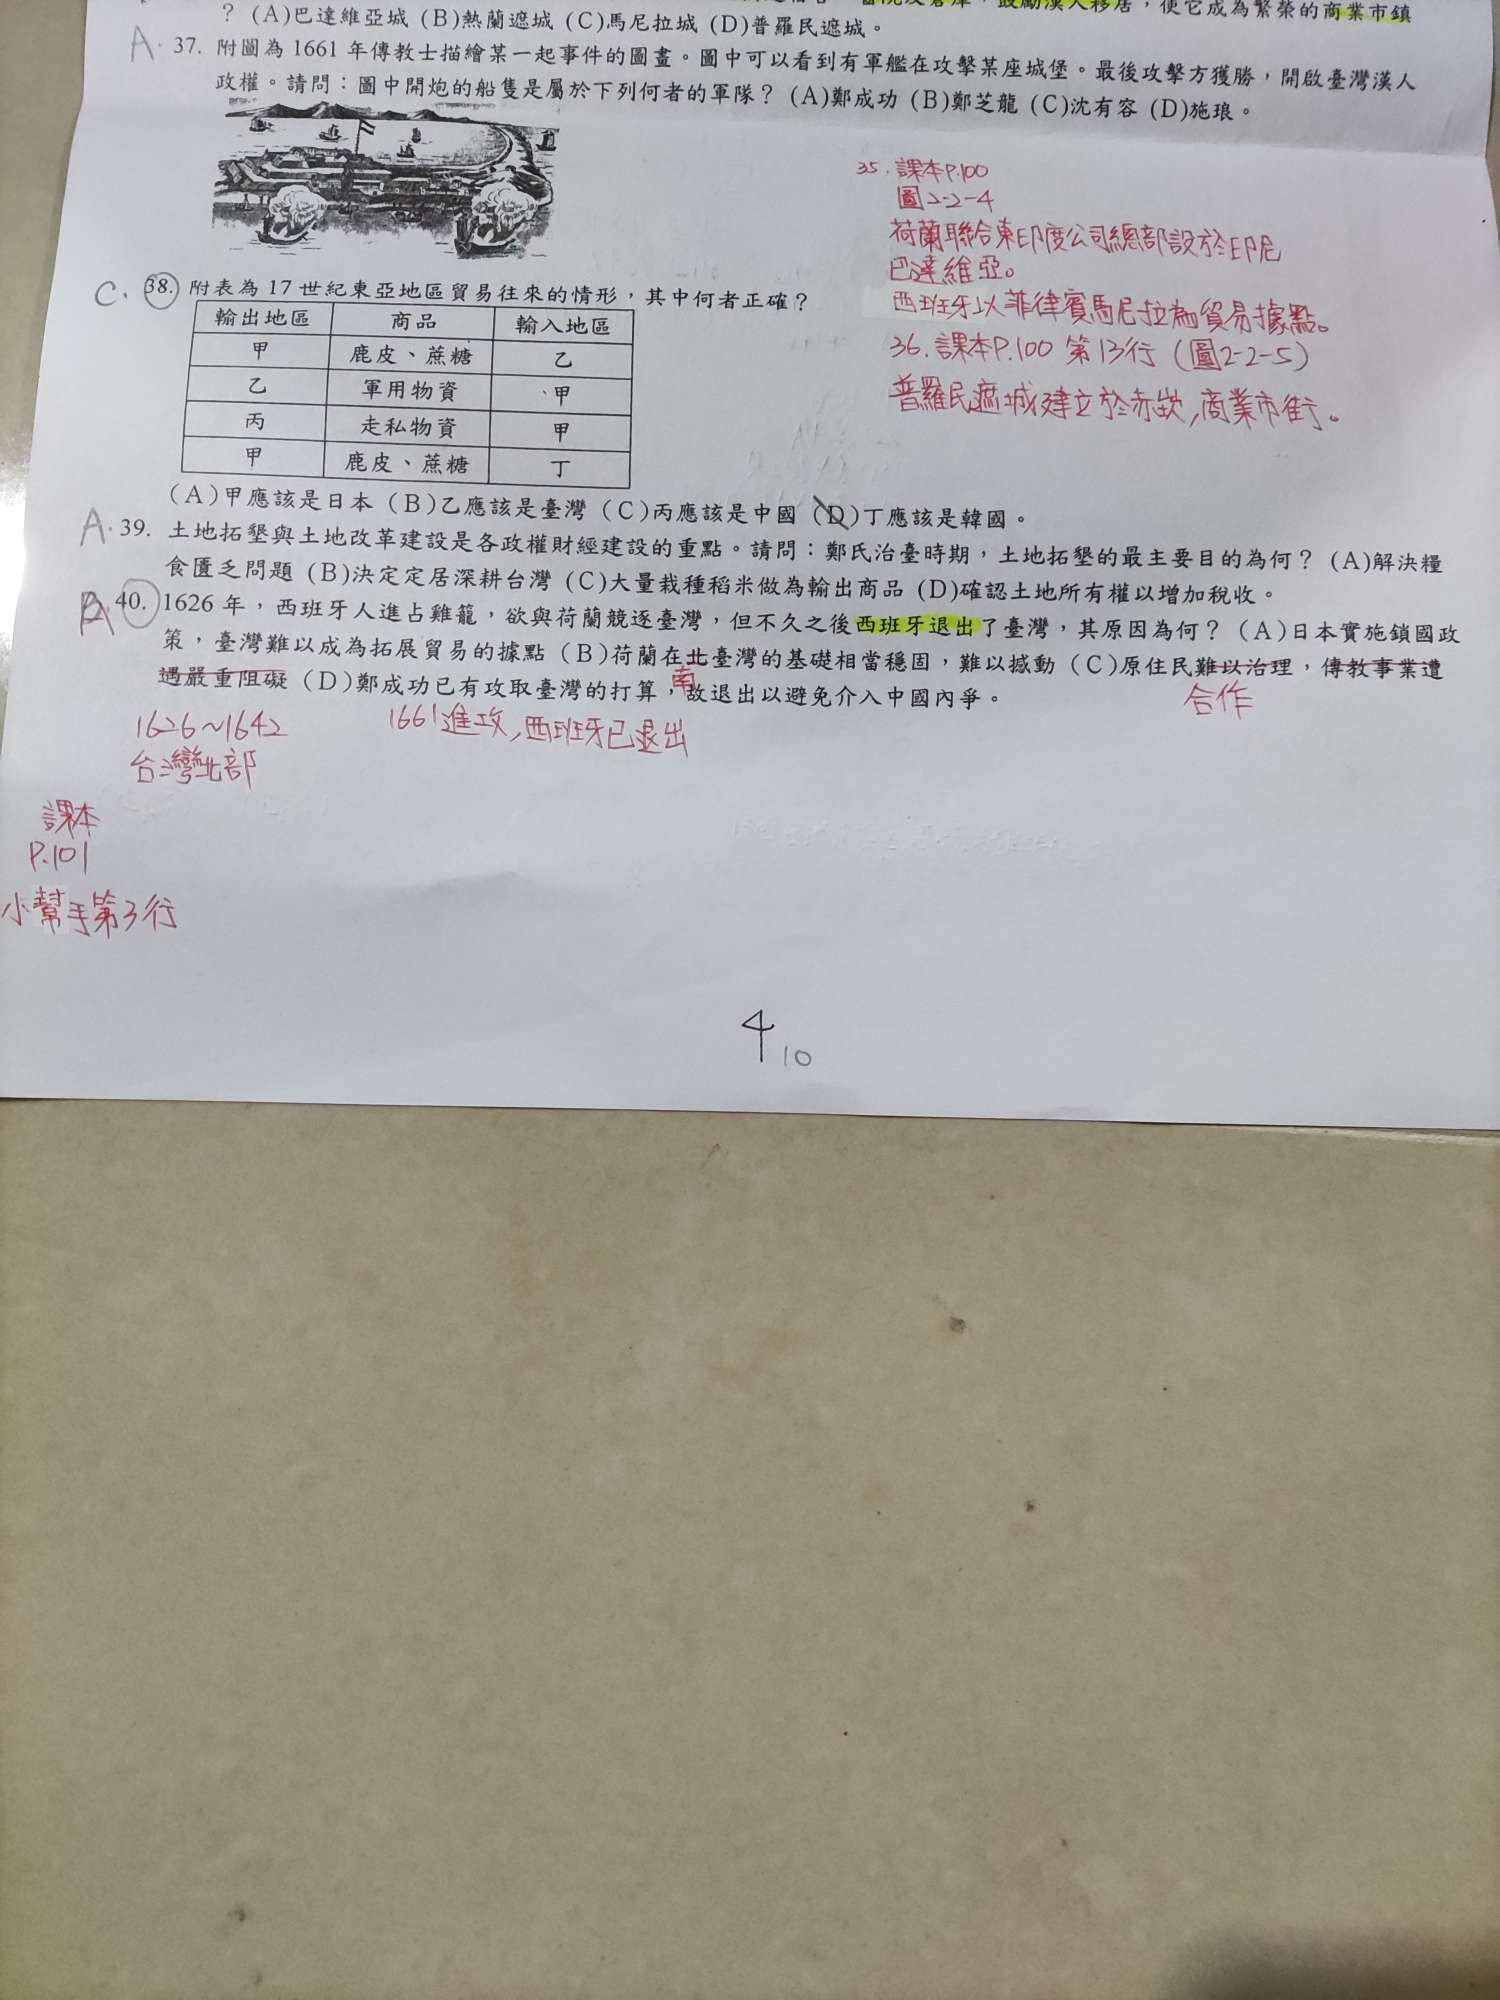 鼓勵漢人移居，使它成為繁榮的商業市鎮
？ (A)巴達維亞城 (B)熱蘭遮城 (C)馬尼拉城 (D)普羅民遮城。
A. 37. 附圖為 1661 年傳教士描繪某一起事件的圖畫。圖中可以看到有軍艦在攻擊某座城堡。最後攻擊方獲勝，開啟臺灣漢人
政權。請問：圖中開炮的船隻是屬於下列何者的軍隊？ (A)鄭成功 (B)鄭芝龍 (C)沈有容 (D)施琅。
35. 課本P.100
圖2-2-4
荷蘭聯合東印度公司總部設於印尼
巴達維亞。
西班牙以菲律賓馬尼拉為貿易據點。
36. 課本P.100 第13行 (圖2-2-5)
普羅民遮城建立於赤崁,商業市街。
C. 38. 附表為 17 世紀東亞地區貿易往來的情形，其中何者正確？
輸出地區 商品 輸入地區
甲 鹿皮、蔗糖 乙
乙 軍用物資 甲
丙 走私物資 甲
甲 鹿皮、蔗糖 丁
(A)甲應該是日本 (B)乙應該是臺灣 (C)丙應該是中國 (D)丁應該是韓國。
A. 39. 土地拓墾與土地改革建設是各政權財經建設的重點。請問：鄭氏治臺時期，土地拓墾的最主要目的為何？ (A)解決糧
食匱乏問題 (B)決定定居深耕台灣 (C)大量栽種稻米做為輸出商品 (D)確認土地所有權以增加稅收。
A. 40. 1626 年，西班牙人進占雞籠，欲與荷蘭競逐臺灣，但不久之後西班牙退出了臺灣，其原因為何？ (A)日本實施鎖國政
策，臺灣難以成為拓展貿易的據點 (B)荷蘭在北臺灣的基礎相當穩固，難以撼動 (C)原住民難以治理，傳教事業遭
遇嚴重阻礙 (D)鄭成功已有攻取臺灣的打算，故退出以避免介入中國內爭。
南
合作
1626~1642
台灣北部
1661進攻,西班牙已退出
課本
P.101
小幫手第3行
4
10